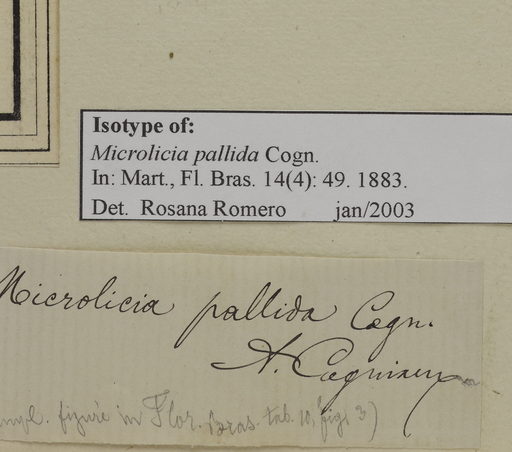 Isotype of:
Microlicia pallida Cogn.
In: Mart., Fl. Bras. 14(4): 49. 1883.
Det. Rosana Romero jan/2003
Microlicia pallida Cogn.
A. Cogniaux
figure in Flor. Bras. tab. 10, fig. 3)